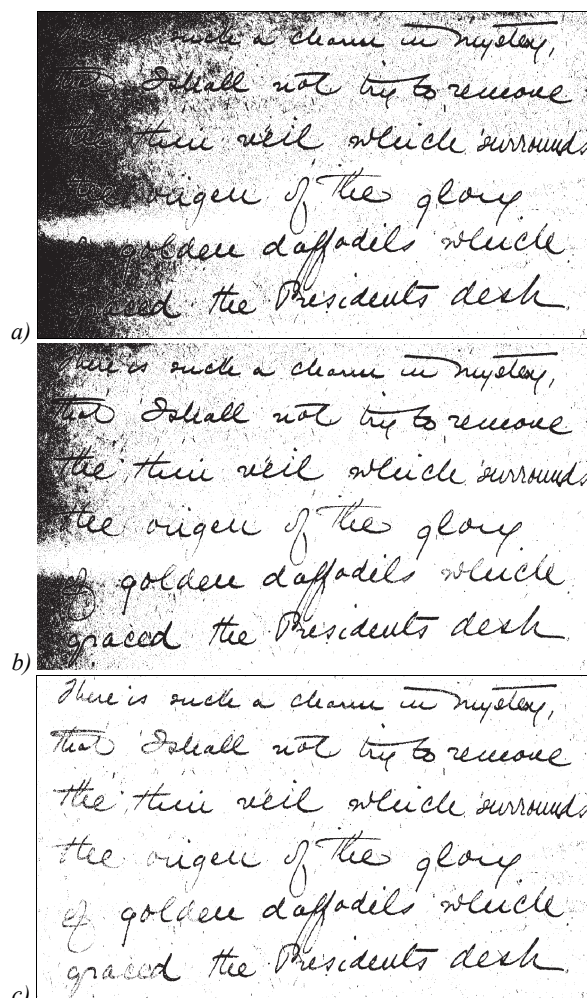 such a charm in mystery,
that I shall not try to remove
the thin veil which surrounds
the origen of the glory
golden daffodils which
a) graced the Presidents desk
There is such a charm in mystery,
that I shall not try to remove
the thin veil which surrounds
the origen of the glory
of golden daffodils which
b) graced the Presidents desk
There is such a charm in mystery,
that I shall not try to remove
the thin veil which surrounds
the origen of the glory
of golden daffodils which
graced the Presidents desk.
c)